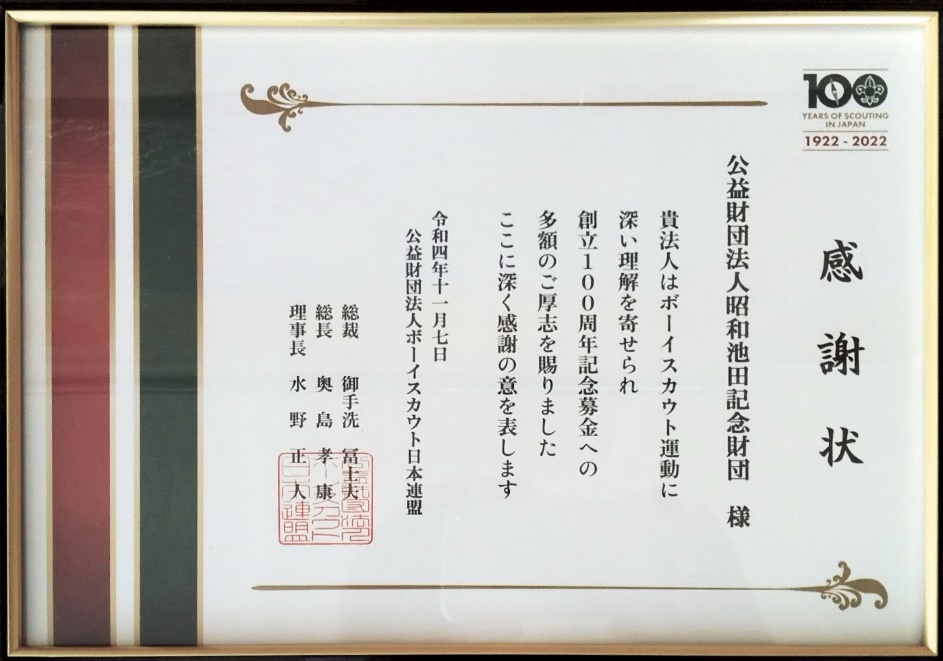 100
YEARS OF SCOUTING
IN JAPAN
1922 - 2022
感謝状
公益財団法人昭和池田記念財団 様
貴法人はボーイスカウト運動に
深い理解を寄せられ
創立100周年記念募金への
多額のご厚志を賜りました
ここに深く感謝の意を表します
令和四年十一月七日
公益財団法人ボーイスカウト日本連盟
総裁 御手洗 冨士夫
総長 奥島 孝康
理事長 水野 正人